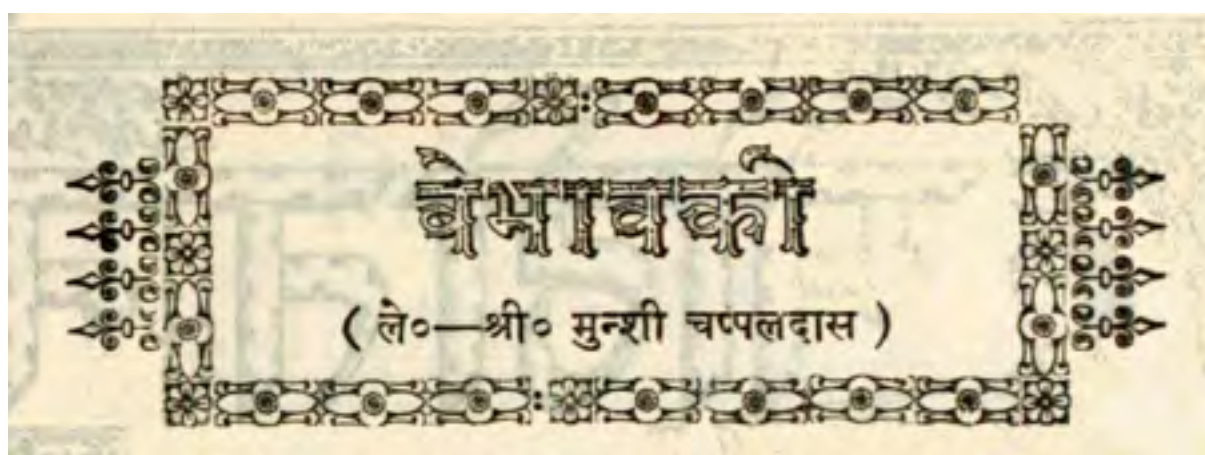 बेभावकी
( ले०—श्री० मुन्शी चप्पलदास )